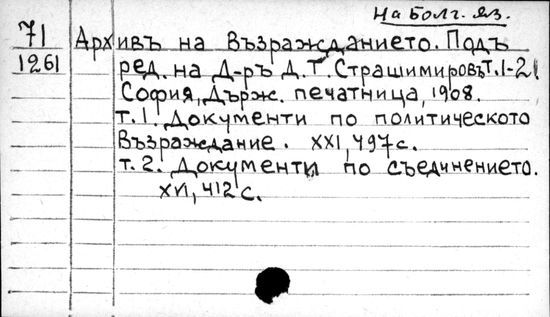 На Болг. яз.
71
1261
Архивъ на Възражданието. Подъ
ред. на Д-ръ Д. Т. Страшимировъ т. 1-2.
София, Държ. печатница, 1908.
т. 1. Документи по политическото
Възраждание. XXI, 497 с.
т. 2. Документи по съединението.
XVI, 412 с.